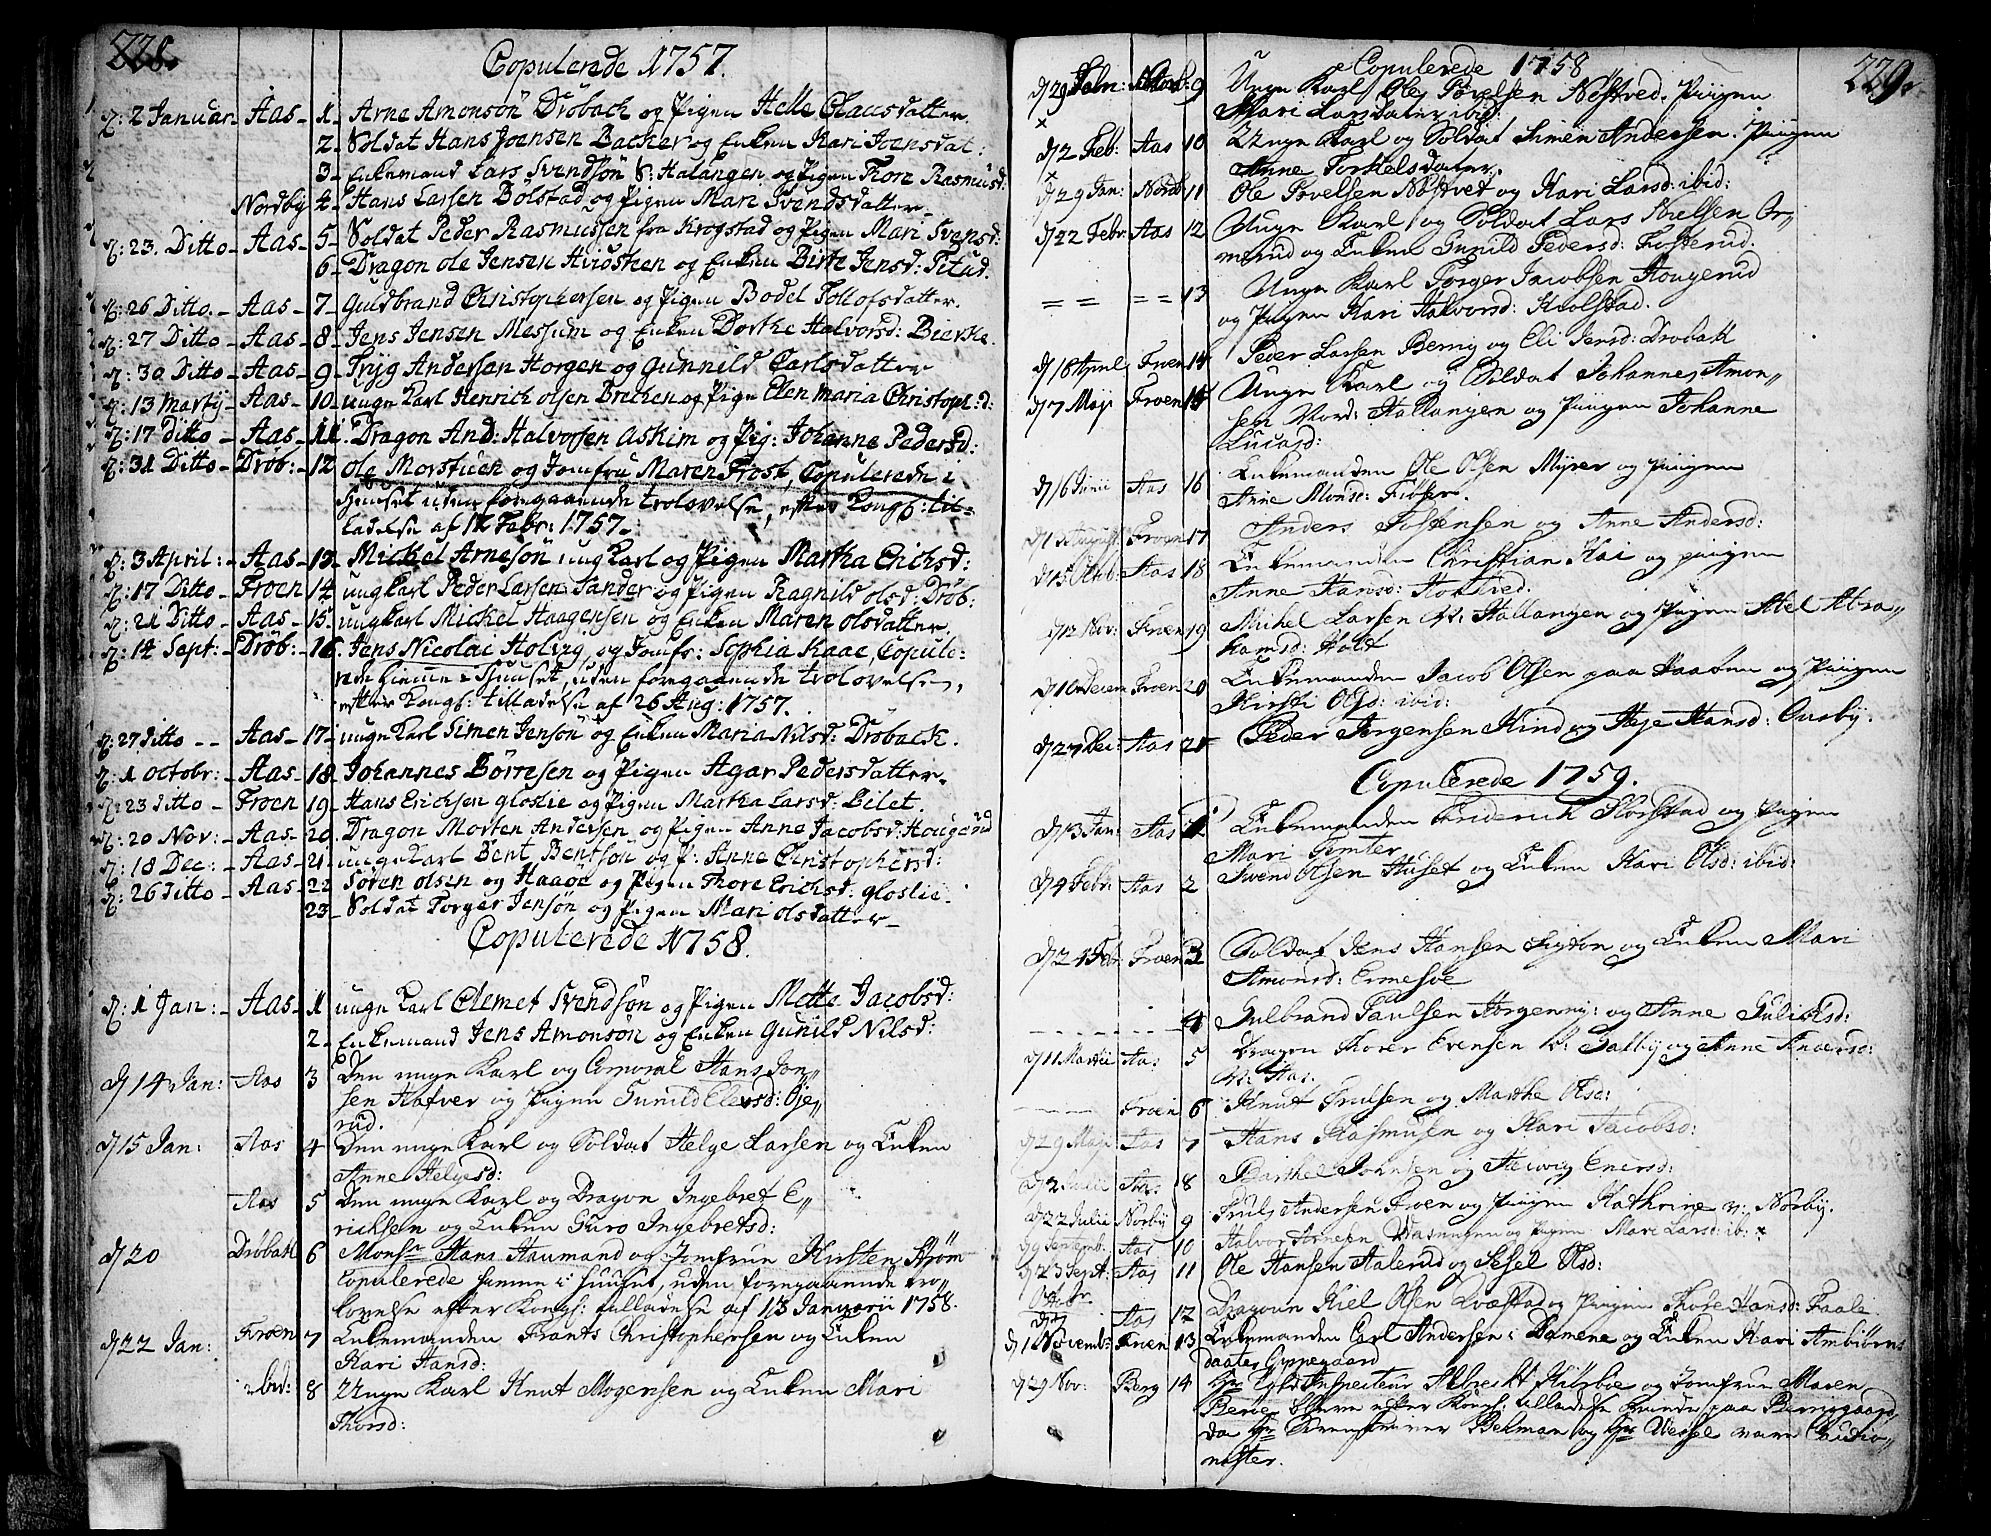 228.
Copulerede 1757.
d: 2 Januar - Aas - 1 - Arne Amonsön Dröback og Pigen Helle Clausdatter
2 - Soldat Hans Joensen Backer og Enken Kari Joensdat:
3 - Enkemand Lars Svendsön v: Halangen og Pigen Thore Rasmusd:
Nordby 4 - Hans Larsen Bölstad og Pigen Mari Svendsdatter
d: 23. Ditto - Aas - 5 - Soldat Peder Rasmussen fra Krogstad og Pigen Mari Svensd:
6 - Dragon Ole Jensen Hvidsteen og Enken Birte Jensd: Pitud.
d: 26 Ditto. - Aas - 7 - Guldbrand Christophersen og Pigen Bodel Tollofsdatter.
d: 27 Ditto - Aas - 8 - Jens Jensen Messum og Enken Dorthe Halvorsd: Bierke.
d: 30 Ditto - Aas - 9 - Tryg Andersen Horgen og Gunnild Carlsdatter
d: 13 Marty - Aas - 10 - unge Karl Henrich Olsen Brecken og Pigen Elen Maria Christoph:d:
d: 17 Ditto - Aas - 11. Dragon And: Halvorsen Askim og Pig: Johanne Pedersd:
d: 31 Ditto - Dröb: - 12 Ole Morstuen og Jomfru Maren Frost, Copulerede i
Huuset uden foregaaende trolovelse, efter Kongl: til-
ladelse af 11 Febr: 1757.
d: 3 April: - Aas - 13 - Mickel Arnesön ung Karl og Pigen Martha Erichsd:
d: 17 Ditto - Froen 14 - ungkarl Peder Larsen Sander og Pigen Ragnild olsd: Dröb:
d: 21 Ditto - Aas - 15 - ungkarl Mickel Haagensen og Enken Maren olsdatter
d: 14 Sept: - Dröb: - 16. Jens Nicolai Holvig, og Jomfr: Sophia Kaae, Copule-
rede hiemme i Huuset, uden foregaaende trolovelse,
efter Kongl: tilladelse af 26 Aug: 1757.
d: 27 Ditto - - Aas - 17 - unge Karl Simen Jensön og Enken Maria Nilsd: Dröback.
d: 1 Octobr: - Aas - 18 - Johannes Börresen og Pigen Agar Pedersdatter
d: 23 Ditto - Froen 19 - Hans Erichsen Gloslie og Pigen Martha Larsd: Bilet.
d: 20 Nov: - Aas - 20 - Dragon Morten Andersen og Pigen Anne Jacobsd: Hougerud
d: 18 Dec: - Aas - 21 - unge Karl Bent Bentsön og P: Anne Christophersd:
d: 26 Ditto - Aas - 22 Sören Olsen og Haaoe og Pigen Thore Erichsd: Gloslie
23 - Soldat Torger Jensön og Pigen Mari olsdatter
Copulerede 1758.
d: 1 Jan: - Aas - 1 unge Karl Clemet Svendsön og Pigen Mette Jacobsd:
2 - Enkemand Jens Amonsön og Enken Gunild Nilsd:
d 14 Jan: Aas 3 Den unge Karl og Corporal Hans Jon-
sen Hafver og Pigen Gunild Elevsd: Gje-
rud.
d 15 Jan: Aas 4 Den unge Karl og Soldat Helge Larsen og Enken
Anne Helgesd:
Aas 5 Den unge Karl og Dragon Ingebret E-
richsen og Enken Guro Ingebretsd:
d 20 Dröbak 6 Monsr Hans Haumand og Jomfrue Kirsten Ström
Copulerede hiemme i huuset, uden foregaaende tro-
lovelse efter Kongl: tilladelse af 13 Januarii 1758.
d 22 Jan: Froen 7 Enkemanden Frants Christophersen og Enken
Kari Hansd:
ibid: 8 Unge Karl Knut Mogensen og Enken Mari
Thorsd:
229.
Copulerede 1758
d 29 Jan: Nordb: 9 Unge Karl Ole Povelsen Nöstved. Piigen
Mari Larsdater ibid:
d 2 Feb: Aas 10 Unge Karl og Soldat Simen Andersen. Piigen
Anne Torkelsdater.
d 29 Jan: Nordb 11 Ole Povelsen Nöstvet og Kari Larsd: ibid:
d 22 Febr: Aas 12 Unge Karl og Soldat Lars Nielsen Or-
merud og Enken Gunild Pedersd: Fosterud.
= = = = 13 Unge Karl Torger Jacobsen Hougerud
og Piigen Kari Halvorsd: Kiolstad.
d 18 April Froen 14 Peder Larsen Berrig og Eli Jensd: Drobak
d 7 Maji Froen 15 Unge Karl og Soldat Johannes Amon-
sen Nord: Hallangen og Piigen Johanne
Lucasd:
d 16 Junii Aas 16 Enkemanden Ole Olsen Myrer og Piigen
Anne Monsd: Fiöser.
d 13 August Froen 17 Anders Tostensen og Anne Andersd:
d 15 Octob: Aas 18 Enkemanden Christian Kai og piigen
Anne Hansd: Holtved.
d 12 Nov: Froen 19 Michel Larsen N: Hallangen og Piigen Abel Abra-
hamsd: Holt
d 10 Decem Froen 20 Enkemanden Jacob Olsen paa Haaöen og Piigen
Kirsti Olsd: ibid:
d 27 Dec: Aas 21 Peder Jorgensen Hind og Aeje Hansd: Ousby.
Copulerede 1759.
d 13 Jan: Aas 1 Enkemanden Friderich Korstad og Piigen
Mari Simter
d 4 Febr: Aas 2 Svend Olsen Huset og Enken Kari Olsd: ibid:
d 24 Feb: Froen 3 Soldat Jens Hansen Digton og Enken Mari
Amonsd: Ermesöe
4 Gulbrand Paulsen Horgen og Anne Gulichsd:
d 11 Martii Aas 5 Dragon Thorer Evensen v: Galby og Anne Andersd:
v: Aas.
Froen 6 Knut Trulsen og Marthe Olsd:
d 29 Maji Aas 7 Hans Rasmusen og Kari Jacobsd:
d 2 Julii Aas: 8 Barthel Johnsen og Helvig Enersd:
d 22 Julii Norby 9 Truls Andersen Froen og Piigen Kathrine v: Norby.
d 9 Septemb: Aas 10 Halvor Arnesen og Piigen Mari Larsd: ib:
d 23 Sept: Aas 11 Ole Hansen Holerud og Sesel Olsd:
Octbr Aas 12 Dragoun Kiel Olsen Lvestad og Piigen Thore Hansd: Faale
d 1 Novemb: Froen 13 Enkemanden Carl Andersen i Damene og Enken Kari Ambiörns
daater Oppegaard
d 29 Nov: Borg 14 Hr Told Inspecteur Albrecht Hiörboe og Jomfrue Maren
Berie bleve efter Kongl: tilladelse viede paa Berriggaard,
da Hr Skrenskriver Bekman og Hr Wessel vare Cautio-
nister.